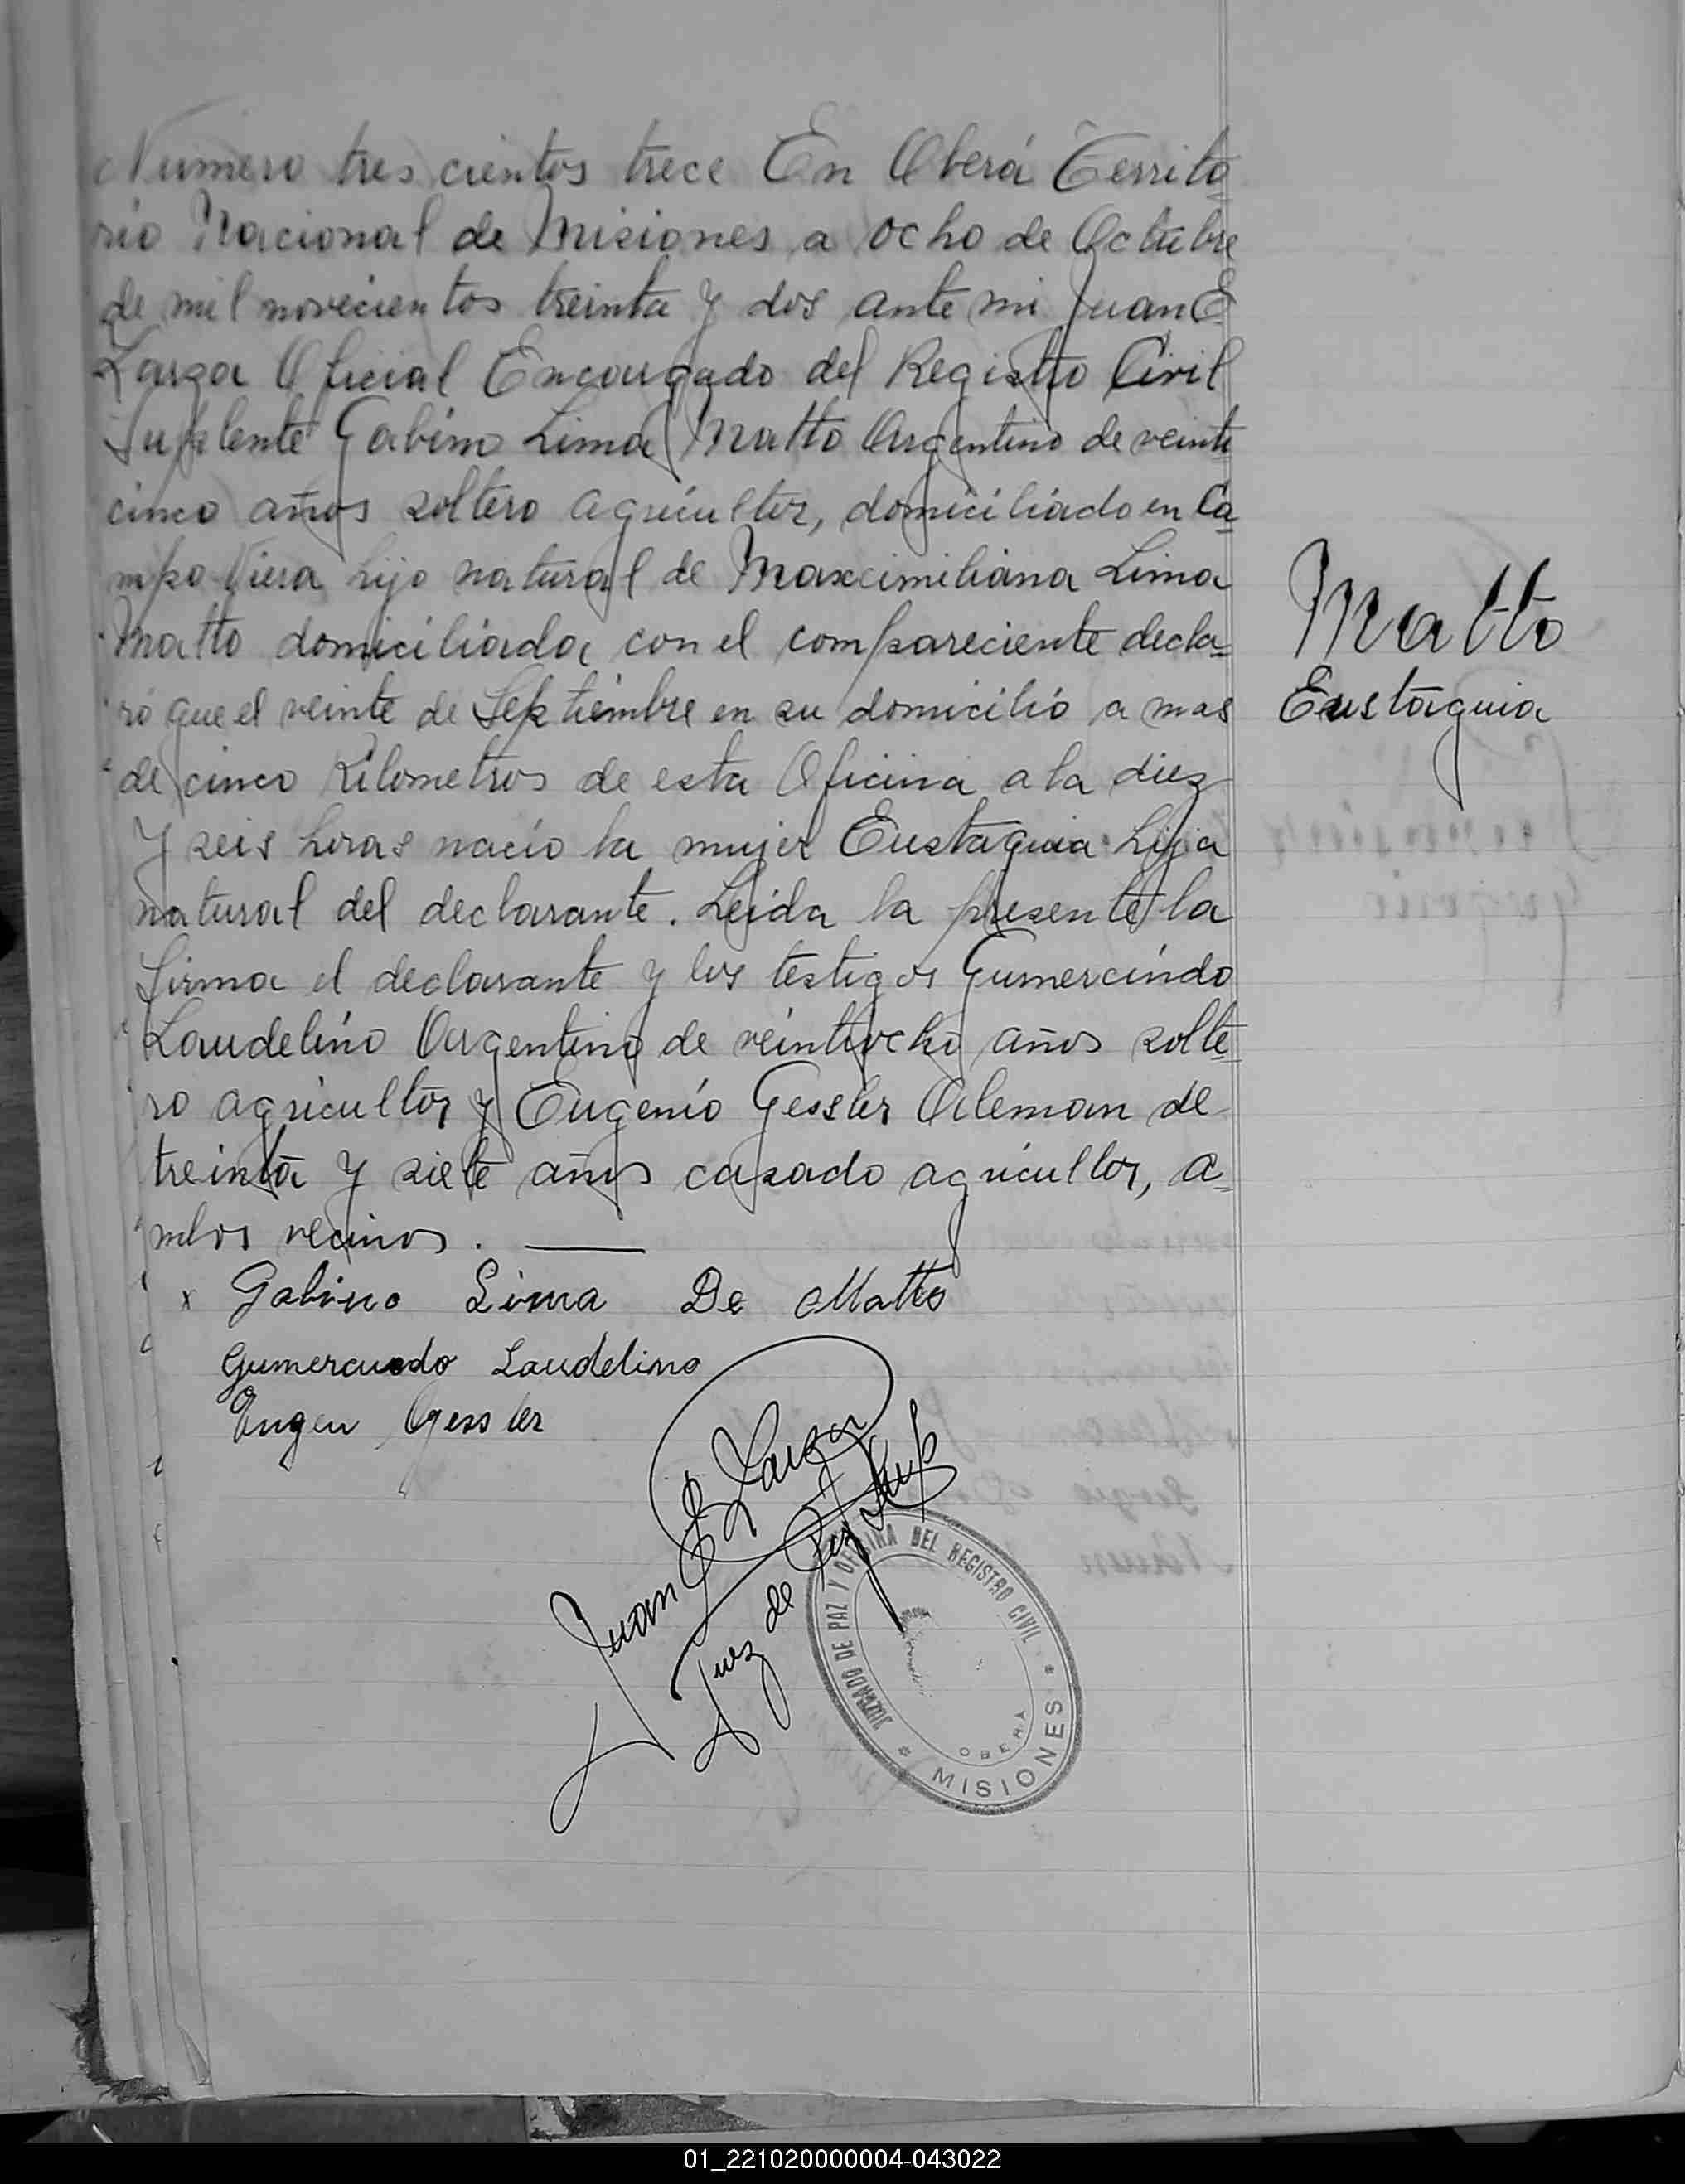 Numero tres cientos trece En Oberá Territo
rio Nacional de Misiones a ocho de Octubre
de mil novecientos treinta y dos ante mi Juan E
Larza Oficial Encargado del Registro Civil
Suplente Gabino Lima Matto Argentino de veinti
cinco años soltero agricultor, domiciliado en Ca
mpo Viera hijo natural de Maxcimiliana Lima
Matto domiciliada con el compareciente decla=
ró que el veinte de Septiembre en su domicilio a mas
de cinco Kilometros de esta Oficina a la diez
y seis horas nacio la mujer Eustaquia hija
natural del declarante. Leida la presente la
firma el declarante y los testigos Gumercindo
Laudelino Argentino de veintiocho años solte
ro agricultor y Eugenio Gessler Aleman de
treinta y siete años casado agricultor, a=
mbos vecinos.
x Gabino Lima De Matto
Gumercindo Laudelino
Eugen Gessler
Juan E Larza
Juez de Paz Sup
Matto
Eustaquia
JUZGADO DE PAZ Y OFICINA DEL REGISTRO CIVIL
* MISIONES *
OBERÁ
01_221020000004-043022